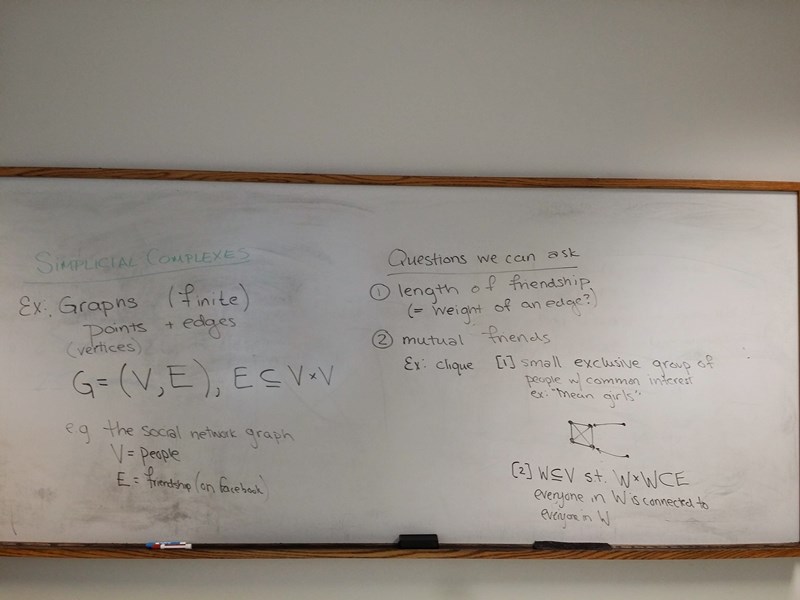 SIMPLICIAL COMPLEXES
Ex: Graphs (finite)
points + edges
(vertices)
G = (V, E), E ⊆ V × V
e.g the social network graph
V = people
E = friendship (on facebook)
Questions we can ask
① length of friendship
(= weight of an edge?)
② mutual friends
Ex: clique [1] small exclusive group of
people w/ common interest
ex. "mean girls"
[2] W ⊆ V s.t. W × W ⊂ E
everyone in W is connected to
everyone in W